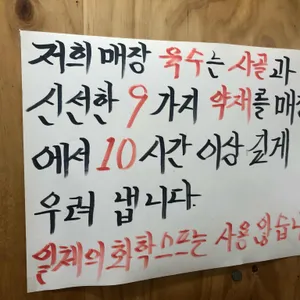 저희 매장 육수는 사골과
신선한 9가지 약재를 매장
에서 10시간 이상 깊게
우려 냅니다.
일체의 화학스프는 사용 않습니